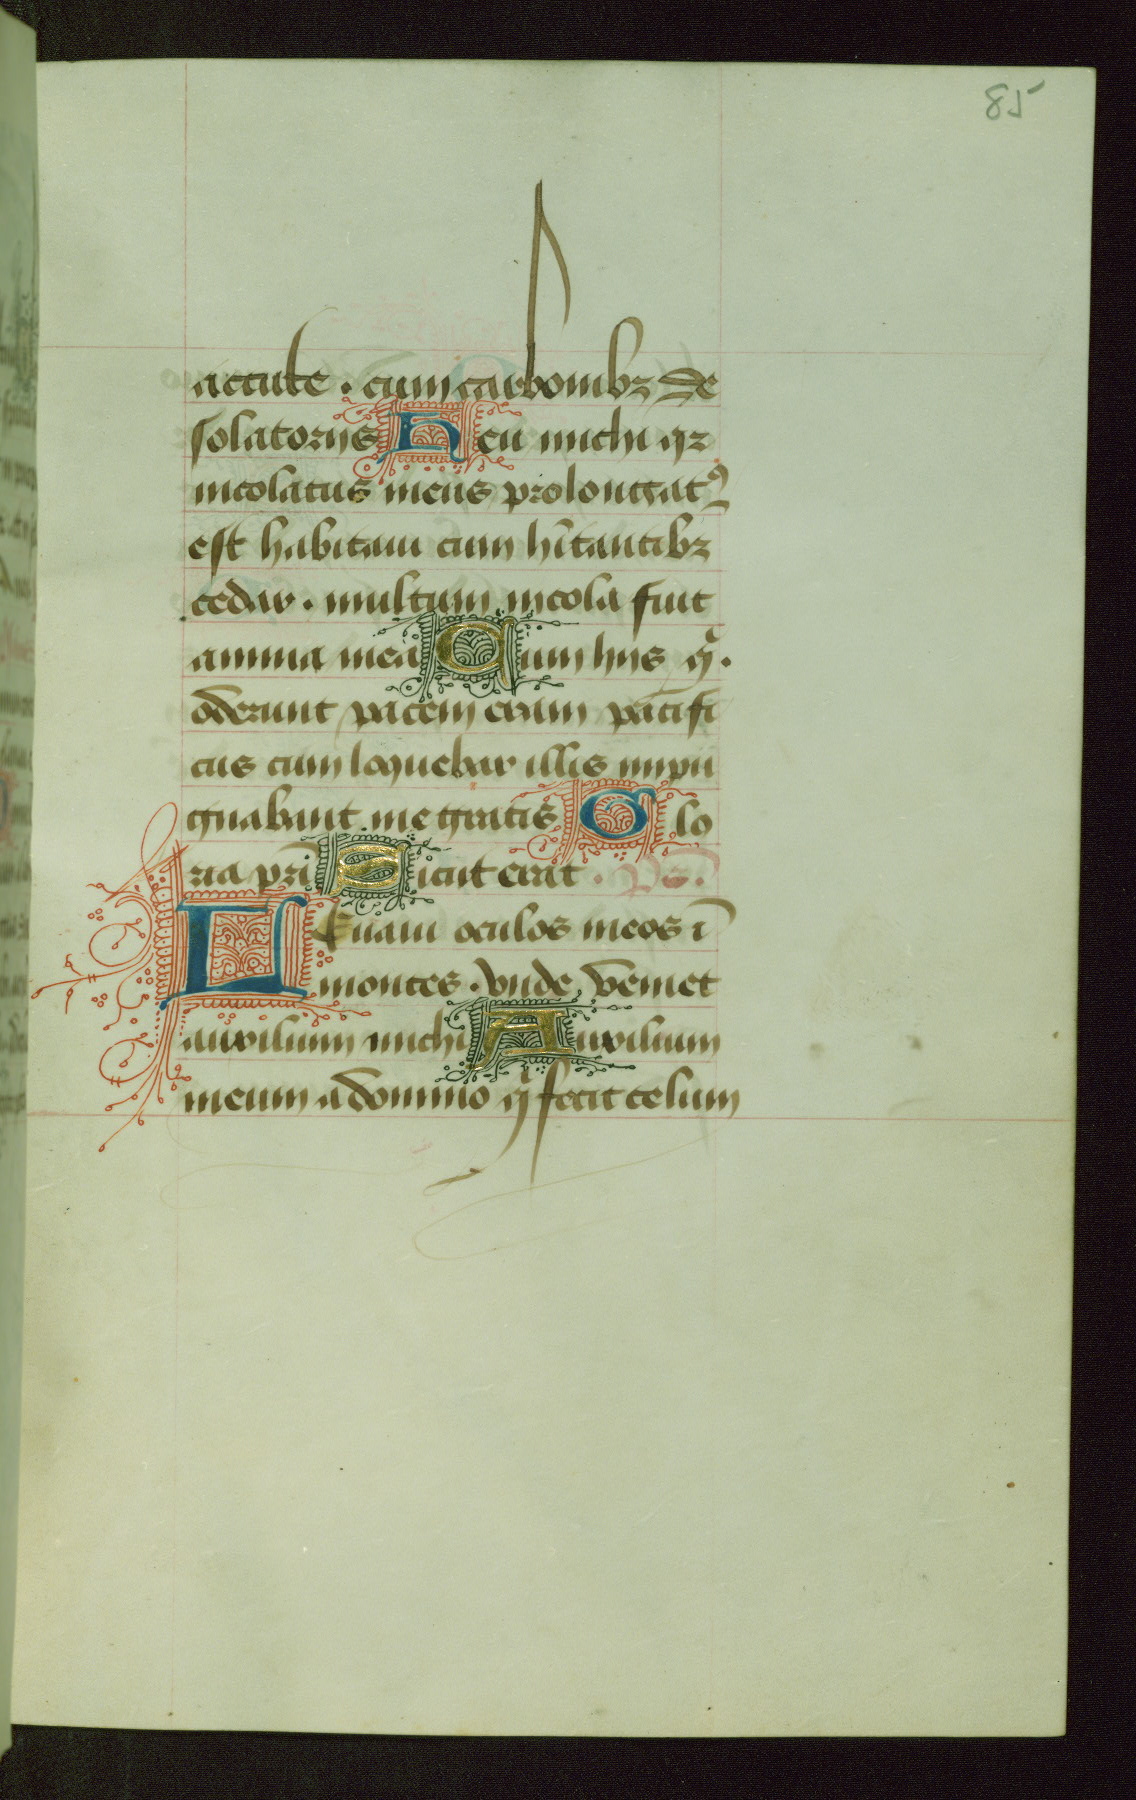 85
acute . cum carbonibꝫ de
solatorijs Heu michi qꝛ
incolatus meus prolongatꝰ
est habitaui cum hītantibꝫ
cedar . multum incola fuit
anima mea Cum hijs q̄ .
oderunt pacem eram pacifi
cus cum loquebar illis inpu
gnabant me gratis Glo
ria pr̄i Sicut erat . ps̄.
LEuaui oculos meos ī
montes . vnde veniet
auxilium michi Auxilium
meum a domino q̄ fecit celum